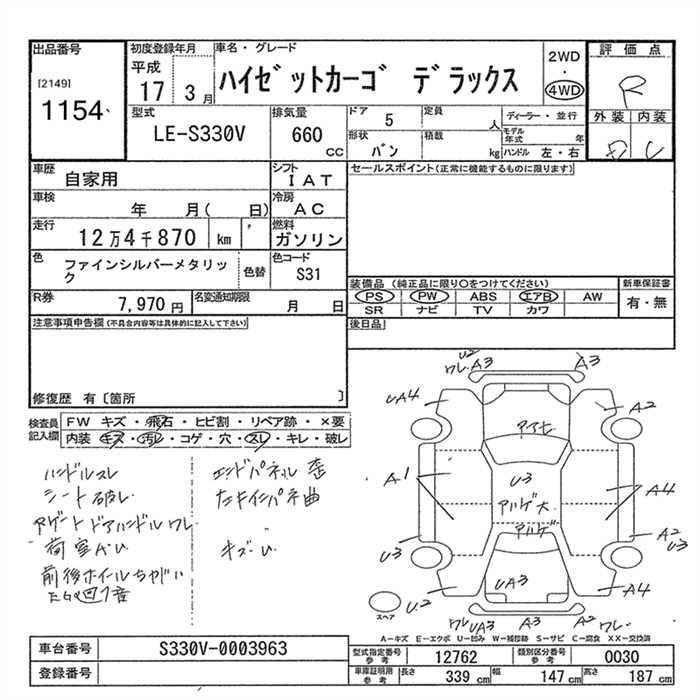 出品番号
[2149]
1154
初度登録年月
平成
17 3 月
車名・グレード
ハイゼットカーゴ デラックス
2WD
・
4WD
評価点
R
外装 内装
D C
型式
LE-S330V
排気量
660
CC
ドア
5
定員
人
形状
バン
積載
kg
ディーラー・並行
モデル年式
年
ハンドル 左・右
車歴
自家用
シフト
I A T
車検
年 月( 日)
冷房
A C
走行
12万4千870 km
燃料
ガソリン
色
ファインシルバーメタリック
色替
色コード
S31
R券
7,970 円
名変通知期限
月 日
セールスポイント(正常に機能するものに限ります)
装備品(純正品に限り○をつけてください)
PS PW ABS エアB AW
SR ナビ TV カワ
新車保証書
有・無
後日品
注意事項申告欄(不具合内容等は具体的に記入して下さい)
修復歴 有[箇所 ]
検査員記入欄
FW キズ・飛石・ヒビ割・リペア跡・×要
内装 キズ・汚レ・コゲ・穴・スレ・キレ・破レ
ハンドルスレ
シート破レ
ドアハンドルワレ
前後ホイールちがい
エンドパネル
キズ・U
U2
ワレ A3
A3
UA4
A2
A1
U3
A4
A2
U3
U3
UA3
U2
A4
ワレ
UA3
A3
A2
ワレ
スペア
A-キズ E-エクボ U-凹み W-補修跡 S-サビ C-腐食 XX-交換済
車台番号
S330V-0003963
登録番号
型式指定番号
参考
12762
類別区分番号
参考
0030
車庫証明用
参考
長さ
339 cm
幅
147 cm
高さ
187 cm